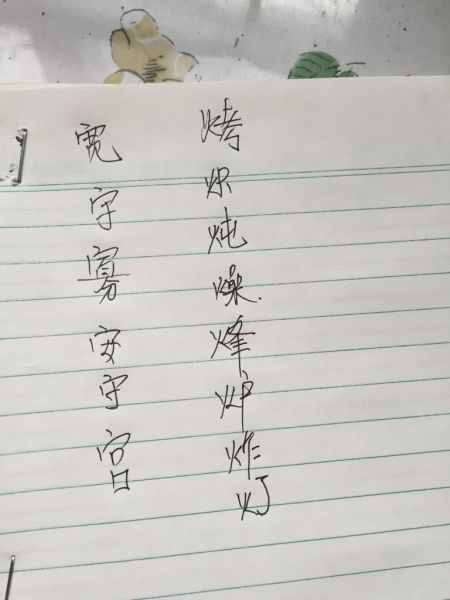 宽
字
寡
安
守
宫
烤
炽
炖
燥
烽
炉
炸
灯